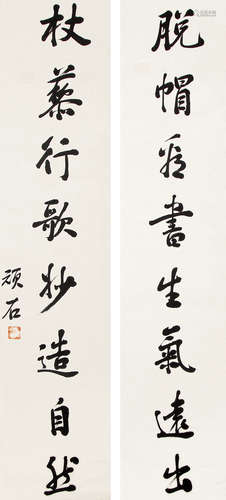 脫帽看書生氣遠出
杖藜行歌妙造自然
頑石